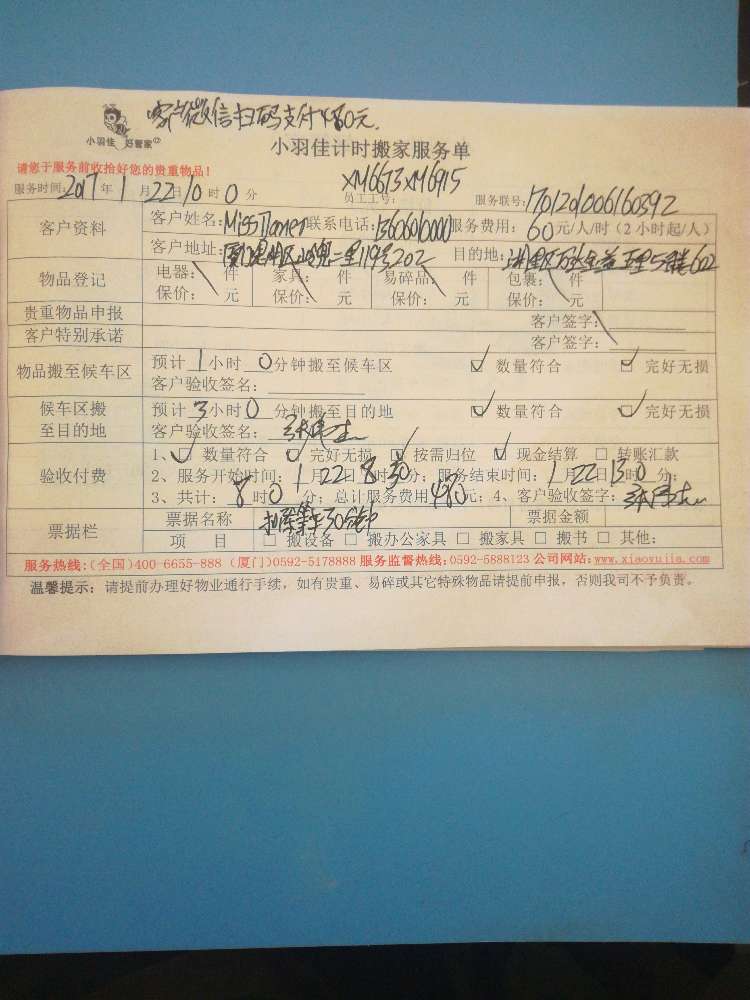 客户微信扫码支付480元.
小羽佳 好管家
小羽佳计时搬家服务单
请您于服务前收拾好您的贵重物品!
XM6673XM6915
服务时间: 2017年1月22日10时0分 员工工号: 服务联号: 1701201006160392
客户资料 客户姓名: Miss 联系电话: 13606010000 服务费用: 60元/人/时(2小时起/人)
客户地址: 二里119号202 目的地: 602
物品登记 电器: 件 家具: 件 易碎品: 件 包裹: 件
保价: 元 保价: 元 保价: 元 保价: 元
贵重物品申报 客户签字:
客户特别承诺 客户签字:
物品搬至候车区 预计1小时0分钟搬至候车区 ☑数量符合 ☑完好无损
客户验收签名:
候车区搬至目的地 预计3小时0分钟搬至目的地 ☑数量符合 ☑完好无损
客户验收签名:
验收付费 1、☑数量符合 ☑完好无损 ☑按需归位 ☑现金结算 □转账汇款
2、服务开始时间: 1月22日8时30分; 服务结束时间: 1月22日13时0分;
3、共计: 8时0分; 总计服务费用480元; 4、客户验收签字:
票据栏 票据名称 扣除等车30分钟 票据金额
项 目 □搬设备 □搬办公家具 □搬家具 □搬书 □其他:
服务热线:(全国)400-6655-888 (厦门)0592-5178888 服务监督热线:0592-5888123 公司网站:www.xiaoyujia.com
温馨提示: 请提前办理好物业通行手续, 如有贵重、易碎或其它特殊物品请提前申报, 否则我司不予负责。